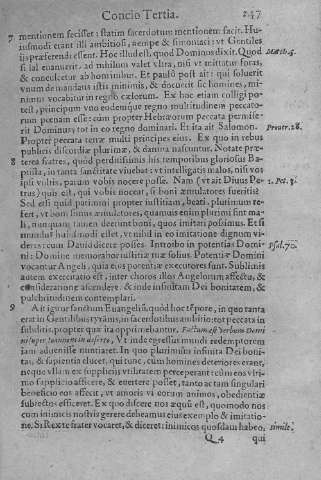 Concio Tertia. 247
7 mentionem fecisset: statim sacerdotum mentionem facit. Hu-
iusmodi erant illi ambitiosi, nempe & simoniaci: vt Gentiles
ijs præferendi essent. Hoc illud est, quod Dominus dixit. Quod Matth. 5.
si sal euanuerit, ad nihilum valet vltra, nisi vt mittatur foras,
& conculcetur ab hominibus. Et paulò post ait: qui soluerit
vnum de mandatis istis minimis, & docuerit sic homines, mi-
nimus vocabitur in regno cælorum. Ex hoc etiam colligi po-
test, principum vno eodemque regno multitudinem peccato-
rum pœnam esse: cùm propter Hebræorum peccata permise-
rit Dominus, tot in eo regno dominari. Et ita ait Salomon. Prouer. 28.
Propter peccata terræ multi principes eius. Ex quo in rebus
publicis discordiæ plurimæ, & damna nascuntur. Notate præ-
8 terea fratres, quòd perditissimis his temporibus gloriosus Ba-
ptista, in tanta sanctitate viuebat: vt intelligatis malos, nisi vos
ipsi vultis, parùm vobis nocere posse. Nam (vt ait Diuus Pe- 1. Pet. 3.
trus) quis est, qui vobis noceat, si boni æmulatores fueritis?
Sed etsi quid patimini propter iustitiam, beati. plurimum re-
fert, vt boni simus æmulatores, quamuis enim plurimi sint ma-
li, nunquam tamen deerunt boni, quos imitari possimus. Et si
in
deres: cum Dauid dicere posses. Introibo in potentias Domi- Psal. 70.
ni: Domine memorabor iustitiæ tuæ solius. Potentiæ Domini
vocantur Angeli, quia eius potentiæ executores sunt. Sublimis
autem exercitatio est, inter choros illos Angelorum affectu, &
consideratione ascendere, & inde infinitam Dei bonitatem, &
pulchritudinem contemplari.
9 Ait igitur sanctum Euangelium, quòd hoc tempore, in quo tanta
erat in Gentilibus tyrannis, in sacerdotibus ambitio: tot peccata in
subditis, propter quæ ita opprimebantur. Factum est verbum Domi
ni super Ioannem in deserto, Vt inde egressus mundi redemptorem
iam aduenisse nuntiaret. In quo plurimùm infinita Dei boni-
tas, & sapientia elucet, qui tunc, cum homines deteriores erant,
neque vllam ex suppliciis vtilitatem perceperant: cum eos viri-
mo supplicio afficere, & euertere posset, tanto ac tam singulari
beneficio eos affecit, vt amoris vi eorum animos, obedientiæ
subiectos efficeret. Ex quo discere nos æquū est, quomodo nos
cum inimicis nostris gerere debeamus eius exemplo & imitatio-
ne. Si Rex te frater vocaret, & diceret: inimicos quosdam habeo, simile.
Q 4 qui